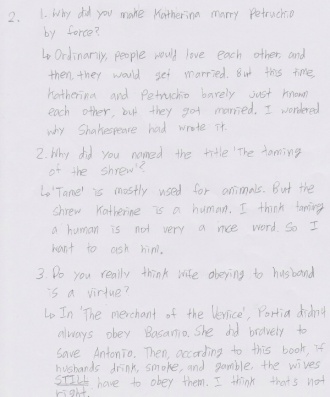 2. 1. Why did you make Katherina marry Petruchio
by force?
↳ Ordinarily, people would love each other and
then, they would get married. But this time,
Katherina and Petruchio barely just known
each other, but they got married. I wondered
why Shakespeare had wrote it.
2. Why did you named the title 'The taming
of the shrew'?
↳ 'Tame' is mostly used for animals. But the
shrew Katherine is a human. I think taming
a human is not very a nice word. So I
want to ask him.
3. Do you really think wife obeying to husband
is a virtue?
↳ In 'The merchant of the Venice', Portia didn't
always obey Basanio. She did bravely to
save Antonio. Then, according to this book, if
husbands drink, smoke, and gamble, the wives
STILL have to obey them. I think that's not
right.